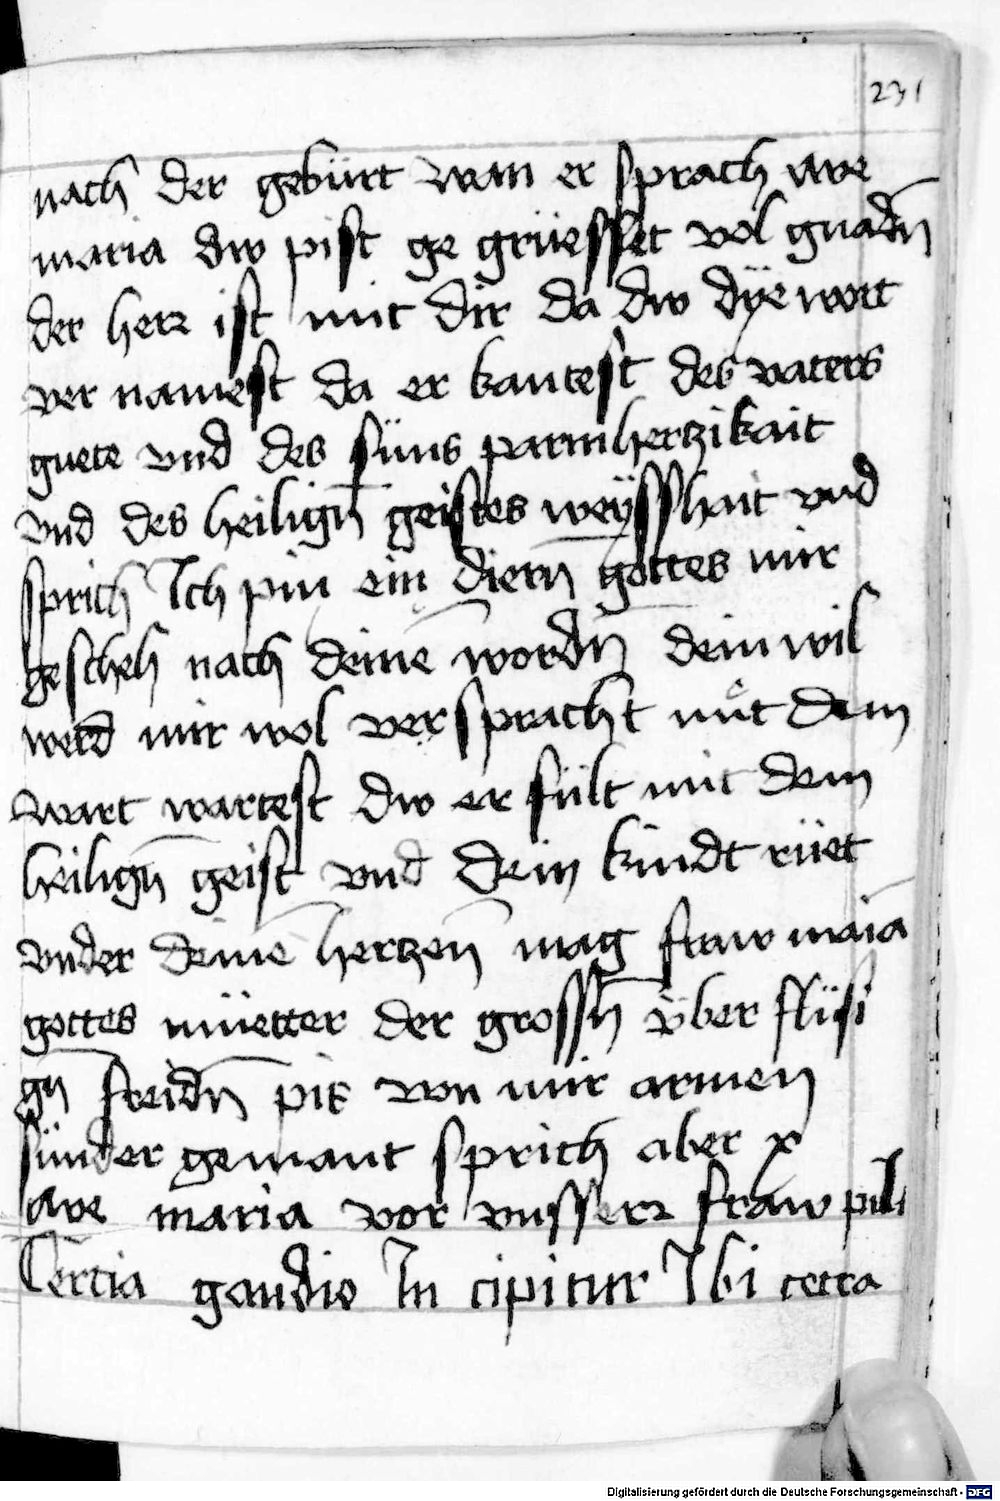 231
nach der gebürt wan er sprach ave
maria dw pist ge grüesset vol gnadn̄
der herr ist mit dir da dw dÿe wort
ver namest da er kantest des vaters
guete vnd des süns parmhertzikait
vnd des heilign̄ geistes weÿsshait vnd
sprich Ich pin ein diern̄ gottes mir
gescheh nach deinē wordn̄ dein wil
werd mir wol verspracht mit dem
wart wartest dw er fült mit dem
heilign̄ geist vnd dein kindt rüet
vnder deinē hertzen̄ mag fraw maīa
gottes müetter der grossn̄ über flüsi
gn̄ freidn̄ pis von mir armen
sünder gemant sprich aber x
ave maria vor vnsserr fraw pild
Tercia gaudio In cipitur Ibi cetra
Digitalisierung gefördert durch die Deutsche Forschungsgemeinschaft - DFG